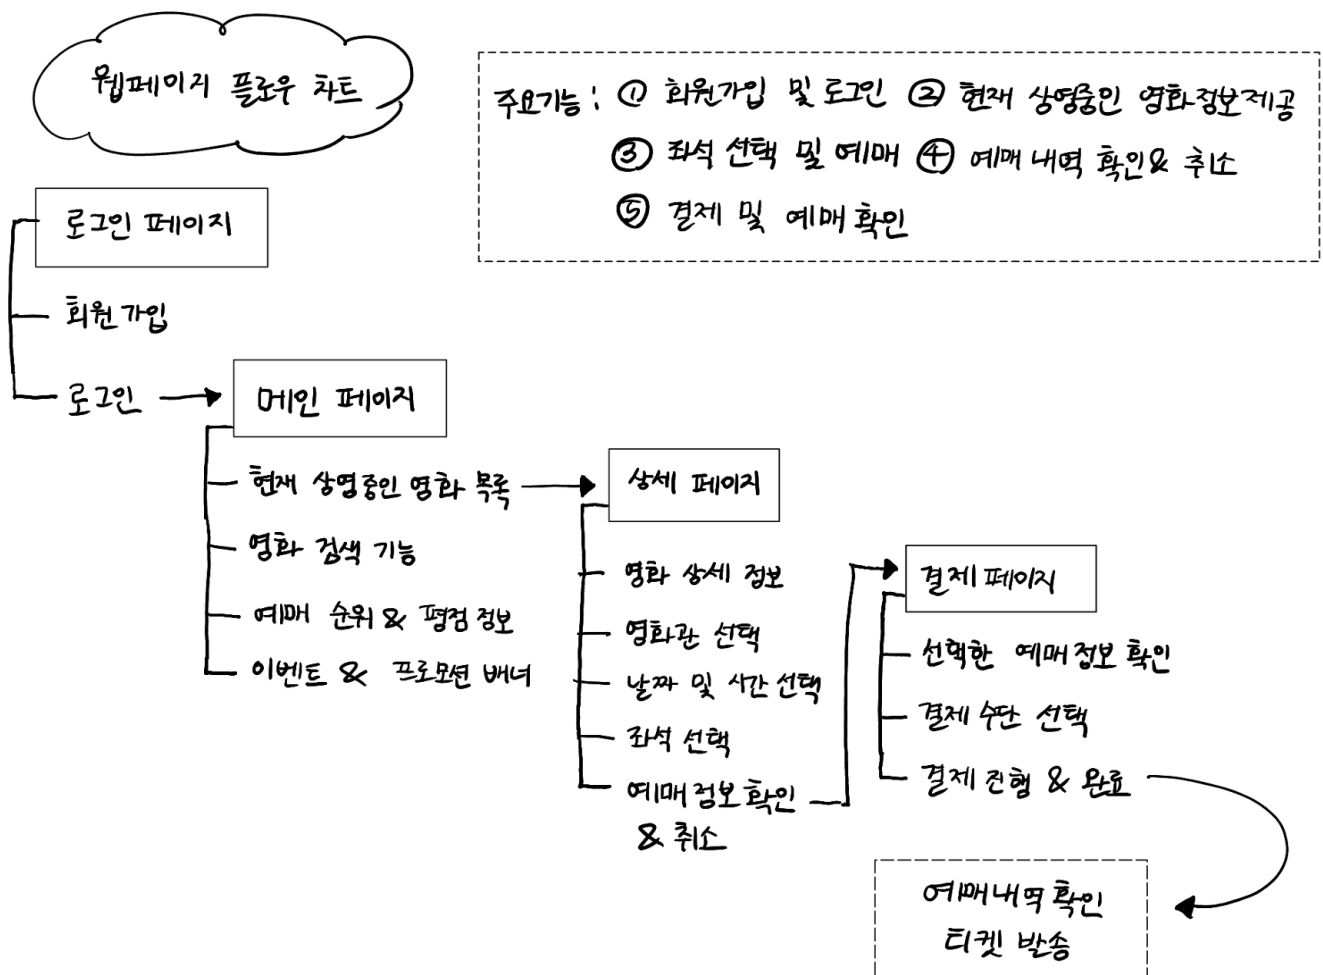 웹페이지 플로우 차트
주요기능 : ① 회원가입 및 로그인 ② 현재 상영중인 영화정보제공
③ 좌석 선택 및 예매 ④ 예매 내역 확인 & 취소
⑤ 결제 및 예매 확인
로그인 페이지
회원가입
로그인
메인 페이지
현재 상영중인 영화 목록
영화 검색 기능
예매 순위 & 평점 정보
이벤트 & 프로모션 배너
상세 페이지
영화 상세 정보
영화관 선택
날짜 및 시간 선택
좌석 선택
예매 정보 확인
& 취소
결제 페이지
선택한 예매 정보 확인
결제 수단 선택
결제 진행 & 완료
예매내역 확인
티켓 발송